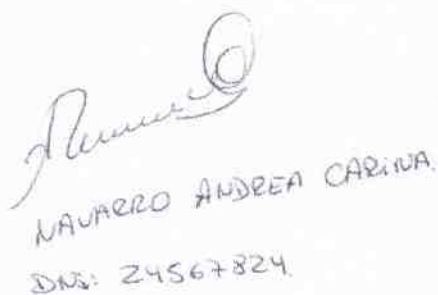 NAVARRO ANDREA CARINA.
DNI: 24567824